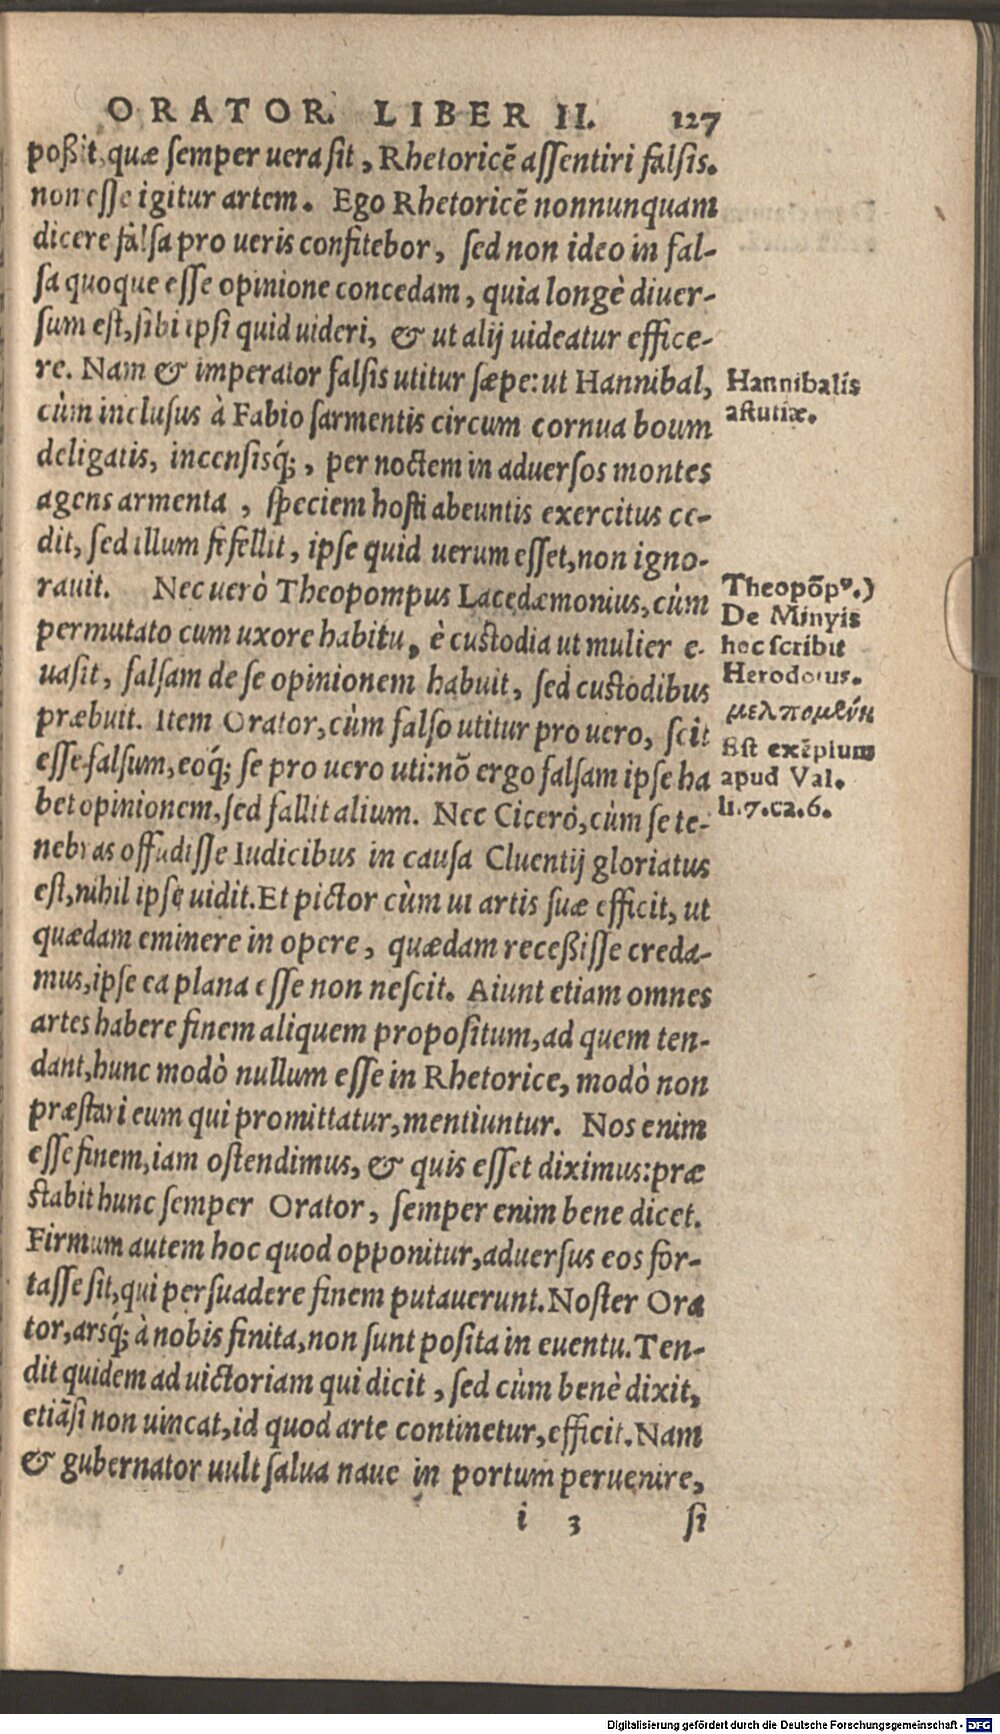 ORATOR. LIBER II. 127
poßit, quæ semper uera sit, Rhetoricē assentiri falsis.
non esse igitur artem. Ego Rhetoricē nonnunquam
dicere falsa pro ueris confitebor, sed non ideo in fal-
sa quoque esse opinione concedam, quia longè diuer-
sum est, sibi ipsi quid uideri, & ut alij uideatur effice-
re. Nam & imperator falsis utitur sæpe: ut Hannibal,
cùm inclusus à Fabio sarmentis circum cornua boum
deligatis, incensisq́;, per noctem in aduersos montes
agens armenta, speciem hosti abeuntis exercitus ce-
dit, sed illum fefellit, ipse quid uerum esset, non igno-
rauit. Nec uerò Theopompus Lacedæmonius, cùm
permutato cum uxore habitu, è custodia ut mulier e-
uasit, falsam de se opinionem habuit, sed custodibus
præbuit. Item Orator, cùm falso utitur pro uero, scit
esse falsum, eoq́; se pro uero uti: nō ergo falsam ipse ha
bet opinionem, sed fallit alium. Nec Cicero, cùm se te-
nebras offudisse Iudicibus in causa Cluentij gloriatus
est, nihil ipse uidit. Et pictor cùm ui artis suæ efficit, ut
quædam eminere in opere, quædam receßisse creda-
mus, ipse ea plana esse non nescit. Aiunt etiam omnes
artes habere finem aliquem propositum, ad quem ten-
dant, hunc modò nullum esse in Rhetorice, modò non
præstari eum qui promittatur, mentiuntur. Nos enim
esse finem, iam ostendimus, & quis esset diximus: præ
stabit hunc semper Orator, semper enim bene dicet.
Firmum autem hoc quod opponitur, aduersus eos for-
tasse sit, qui persuadere finem putauerunt. Noster Ora
tor, arsq́; à nobis finita, non sunt posita in euentu. Ten-
dit quidem ad uictoriam qui dicit, sed cùm benè dixit,
etiāsi non uincat, id quod arte continetur, efficit. Nam
& gubernator uult salua naue in portum peruenire,
i 3 si
Hannibalis
astutiæ.
Theopōpꝰ.)
De Minyis
hoc scribit
Herodotus.
μελπομένη
Est exēplum
apud Val.
li.7.ca.6.
Digitalisierung gefördert durch die Deutsche Forschungsgemeinschaft - DFG